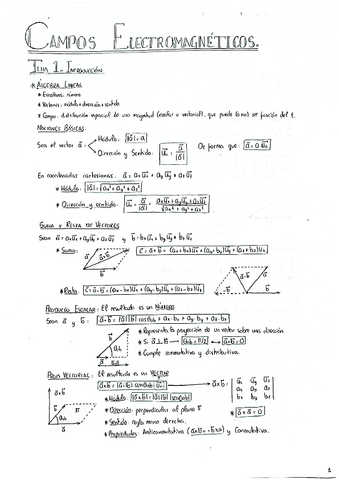 CAMPOS ELECTROMAGNÉTICOS.
TEMA 1. INTRODUCCIÓN.
* ÁLGEBRA LINEAL
* Escalares: número
* Vectores: módulo + dirección + sentido
* Campo: distribución espacial de una magnitud (escalar o vectorial), que puede (o no) ser función del t.
NOCIONES BÁSICAS:
Sea el vector a⃗: Módulo: |a⃗| = a
Dirección y Sentido: u⃗a = a⃗/|a⃗| De forma que: a⃗ = a u⃗a
En coordenadas cartesianas: a⃗ = ax u⃗x + ay u⃗y + az u⃗z
* Módulo: |a⃗| = √(ax² + ay² + az²)
* Dirección y sentido: u⃗a = a⃗/|a⃗| = (ax u⃗x + ay u⃗y + az u⃗z)/√(ax² + ay² + az²)
SUMA Y RESTA DE VECTORES
Sean a⃗ = ax u⃗x + ay u⃗y + az u⃗z y b⃗ = bx u⃗x + by u⃗y + bz u⃗z
* Suma: c⃗ = a⃗ + b⃗ = (ax + bx) u⃗x + (ay + by) u⃗y + (az + bz) u⃗z
* Resta: c⃗ = a⃗ - b⃗ = (ax - bx) u⃗x + (ay - by) u⃗y + (az - bz) u⃗z
PRODUCTO ESCALAR: El resultado es un NÚMERO
Sean a⃗ y b⃗: a⃗ · b⃗ = |a⃗| · |b⃗| cos θab = ax · bx + ay · by + az · bz
* Representa la proyección de un vector sobre una dirección
* Si a⃗ ⊥ b⃗ → θab = π/2 → a⃗ · b⃗ = 0
* Cumple conmutativa y distributiva.
PROD. VECTORIAL: El resultado es un VECTOR
a⃗ x b⃗ = |a⃗| · |b⃗|
* Módulo: |a⃗ x b⃗| = |a⃗| · |b⃗| |sen θab|
* Dirección: perpendicular al plano π
* Sentido: regla mano derecha.
* Propiedades: Anticonmutativa y Conmutativa.
a⃗ x b⃗ = | u⃗x u⃗y u⃗z |
ax ay az
bx by bz
* a⃗ x a⃗ = 0
1